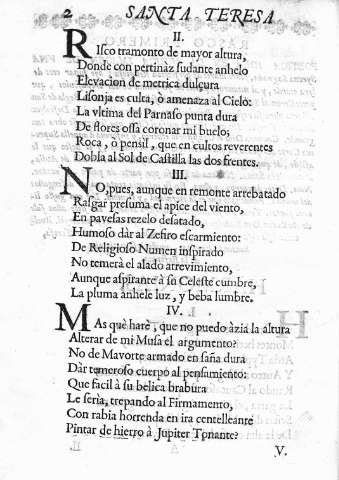 2 SANTA TERESA
II.
RIsco tramonto de mayor altura,
Donde con pertinàz sudante anhelo
Elevacion de metrica dulçura
Lisonja es culta, ò amenaza al Cielo:
La vltima del Parnaso punta dura
De flores ossa coronar mi buelo;
Roca, ò pensil, que en cultos reverentes
Dobla al Sol de Castilla las dos frentes.
III.
NO, pues, aunque en remonte arrebatado
Rasgar presuma el apice del viento,
En pavesas rezelo desatado,
Humoso dàr al Zefiro escarmiento:
De Religioso Numen inspirado
No temerà el alado atrevimiento,
Aunque aspirante à su Celeste cumbre,
La pluma anhele luz, y beba lumbre.
IV.
MAs què harè, que no puedo àzia la altura
Alterar de mi Musa el argumento?
No de Mavorte armado en saña dura
Dàr temeroso cuerpo al pensamiento:
Que facil à su belica brabura
Le serìa, trepando al Firmamento,
Con rabia horrenda en ira centelleante
Pintar de hierro à Jupiter Tonante?
V.